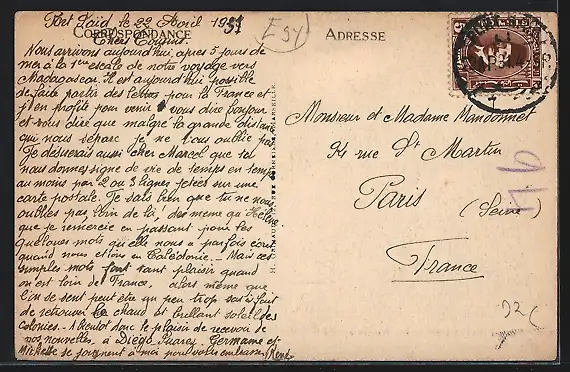 Port Said, le 22 Avril 1937
CORRESPONDANCE
Chers Cousins.
Nous arrivons aujourd'hui, après 5 jours de
mer à la 1ere escale de notre voyage vers
Madagascar. Il est aujourd'hui possible
de faire partir des lettres pour la France et
j'en profite pour venir vous dire bonjour
et vous dire que malgré la grande distance
qui nous sépare je ne vous oublie pas
Je désirerais aussi cher Marcel que tu
nous donnes signe de vie de temps en temps
au moins par 2 ou 3 lignes jetées sur une
carte postale. Je sais bien que tu ne nous
oublies pas loin de là, de même qu'Hélène
que je remercie en passant pour les
quelques mots qu'elle nous a parfois écrit
quand nous étions en Calédonie. Mais ces
simples mots font tant plaisir quand
on est loin de France, alors même que
l'on se sent peut être un peu trop
de retrouver le chaud et brillant soleil des
colonies. A bientôt donc le plaisir de recevoir de
vos nouvelles, à Diégo Suarez. Germaine et
Michette se joignent à moi pour vous embrasser. René
E SY
ADRESSE
Monsieur et Madame Mandonnet
94 rue St Martin
Paris
(Seine)
France